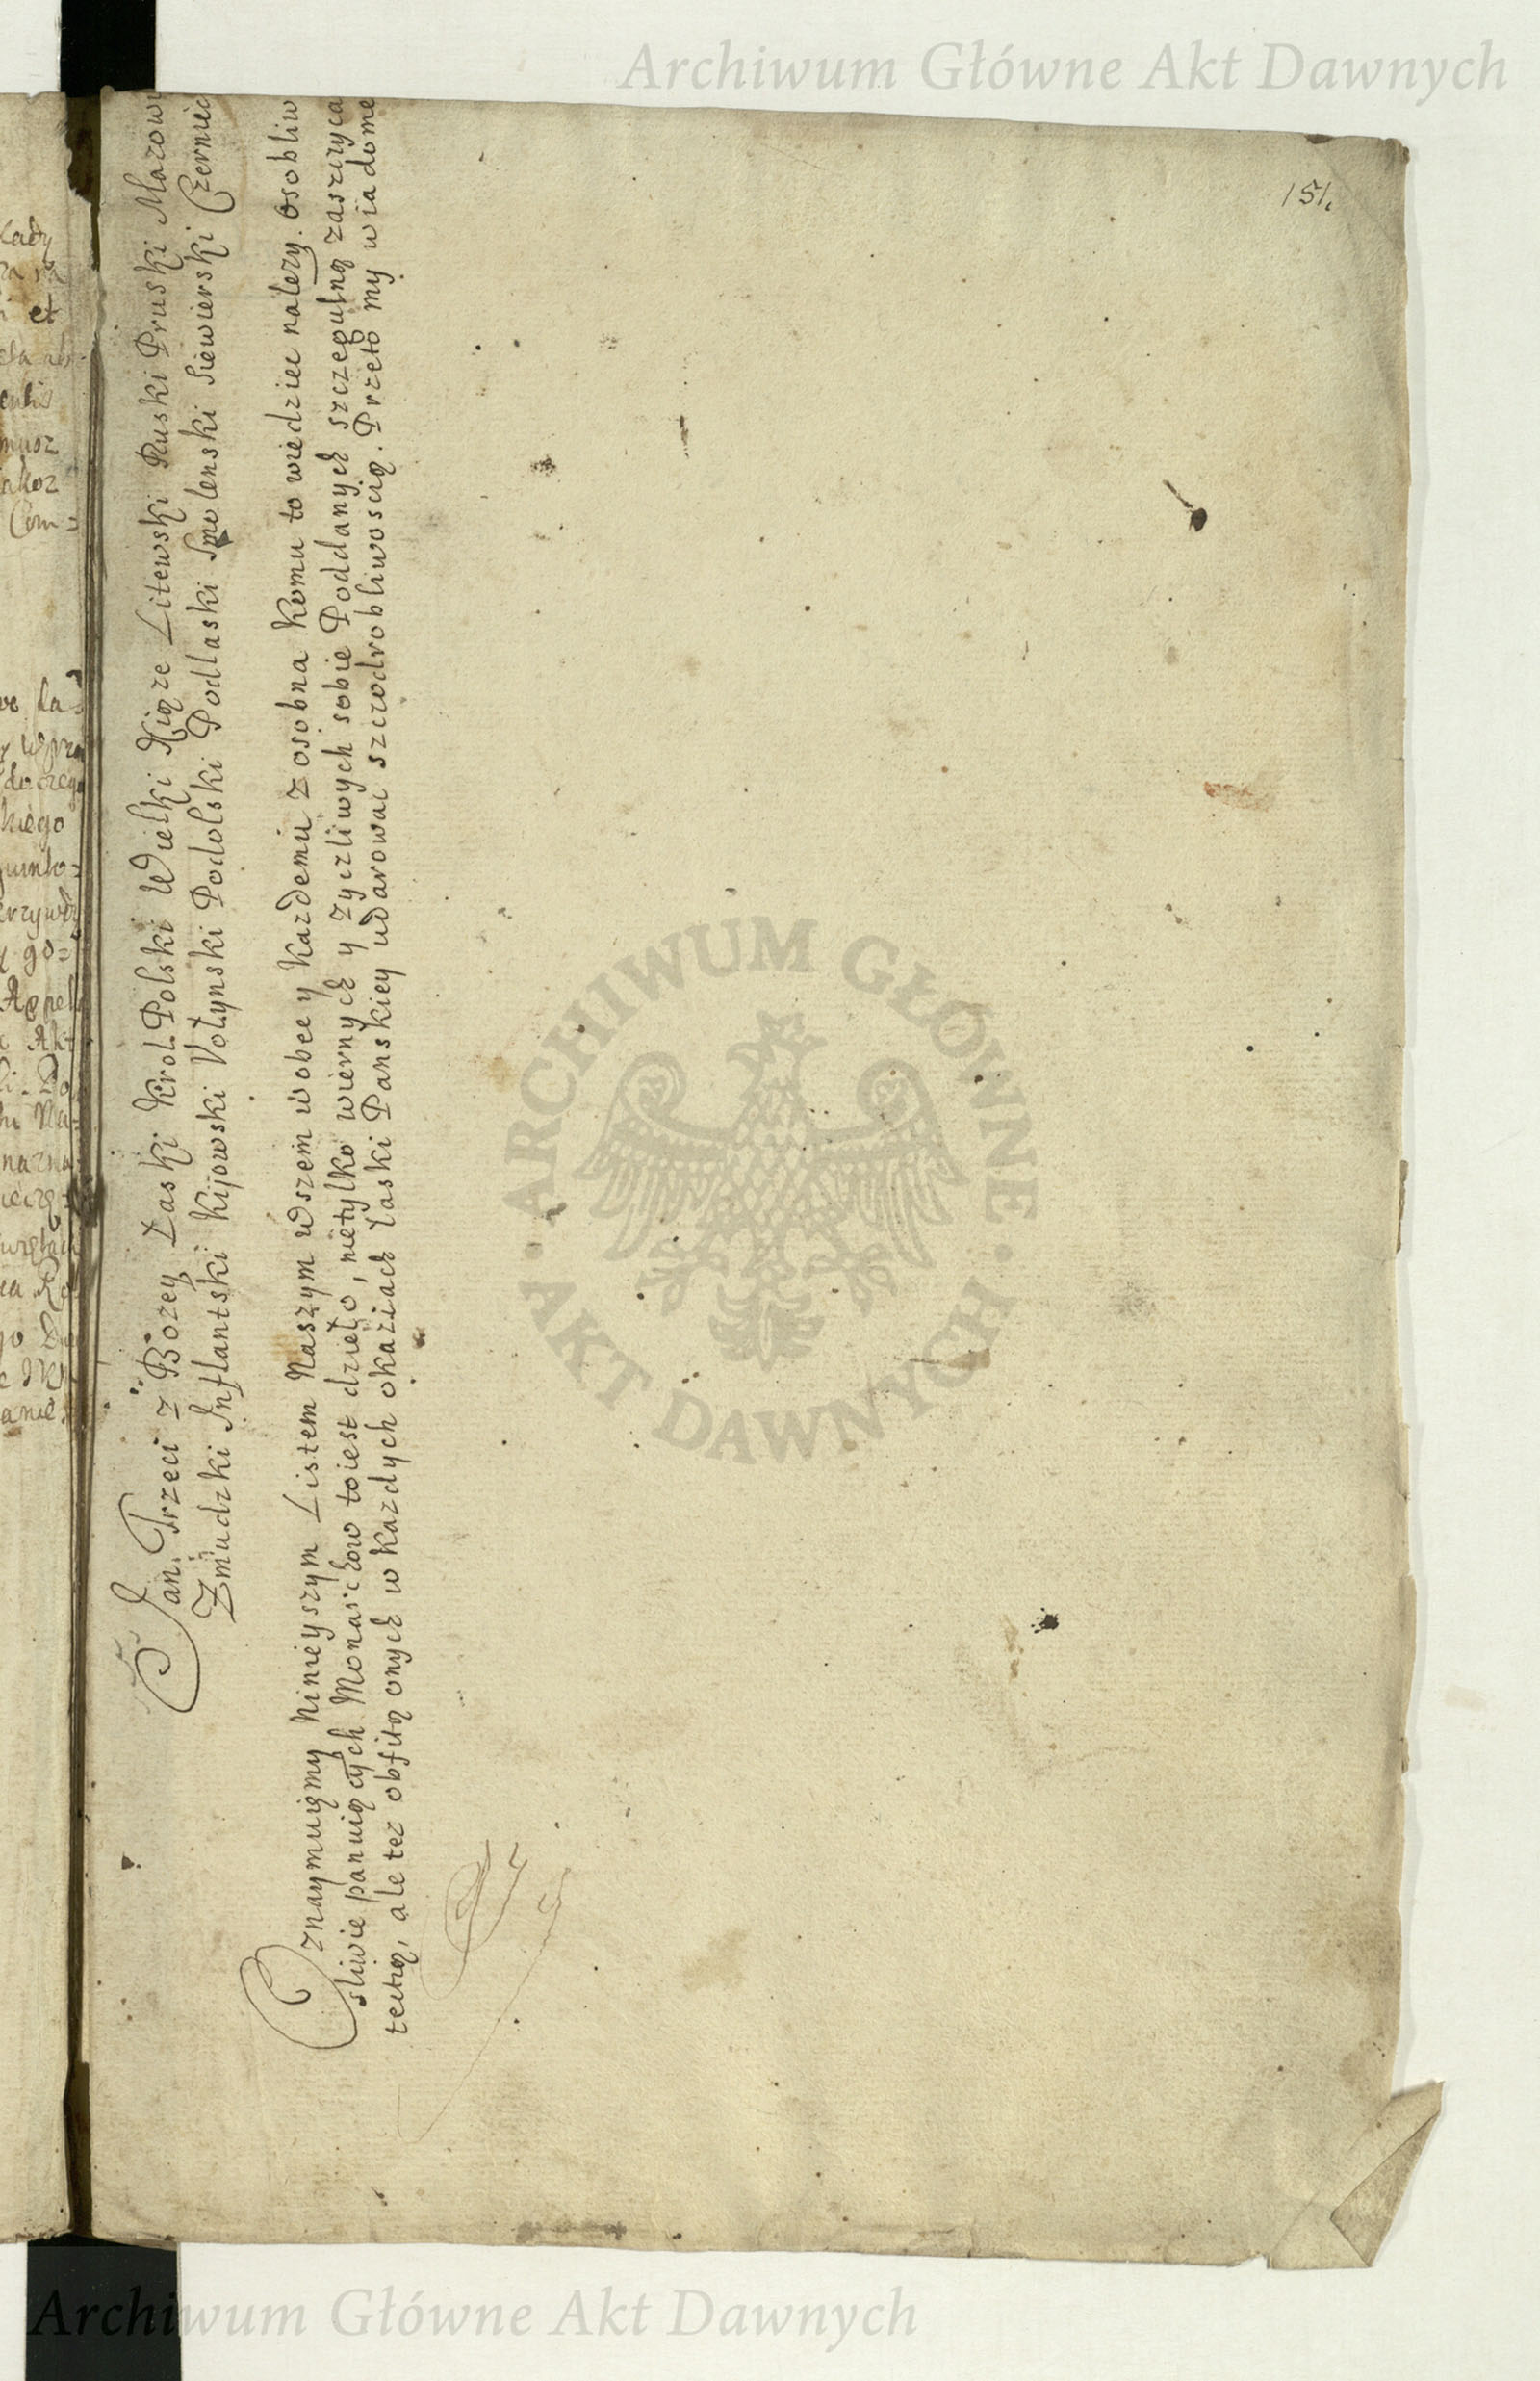 Archiwum Główne Akt Dawnych
151.
Jan Trzeci z Bozey Łaski Krol Polski Wielki Xiąze Litewski Ruski Pruski Mazowi
Zmudzki Inflantski Kijowski Vołynski Podolski Podlaski Smolenski Siewierski Czernie
Oznaymuiąmy Ninieyszym Listem Naszym wszem wobec y Kazdemu z osobna komu to wiedziec nalezy. Osobliw
sliwie panuiących Monarchow toiest dzieło, nietylko wiernych y zyczliwych sobie Poddanych szczegulną zaszczyca
ale tez obfitą onych w kazdych okaziach łaski Panskiey udarowac szczodrobliwoscią. Przeto my wiadome
ARCHIWUM GŁÓWNE
AKT DAWNYCH
Łady
et
musz
Com=
kiego
go=
Akt
Archiwum Główne Akt Dawnych